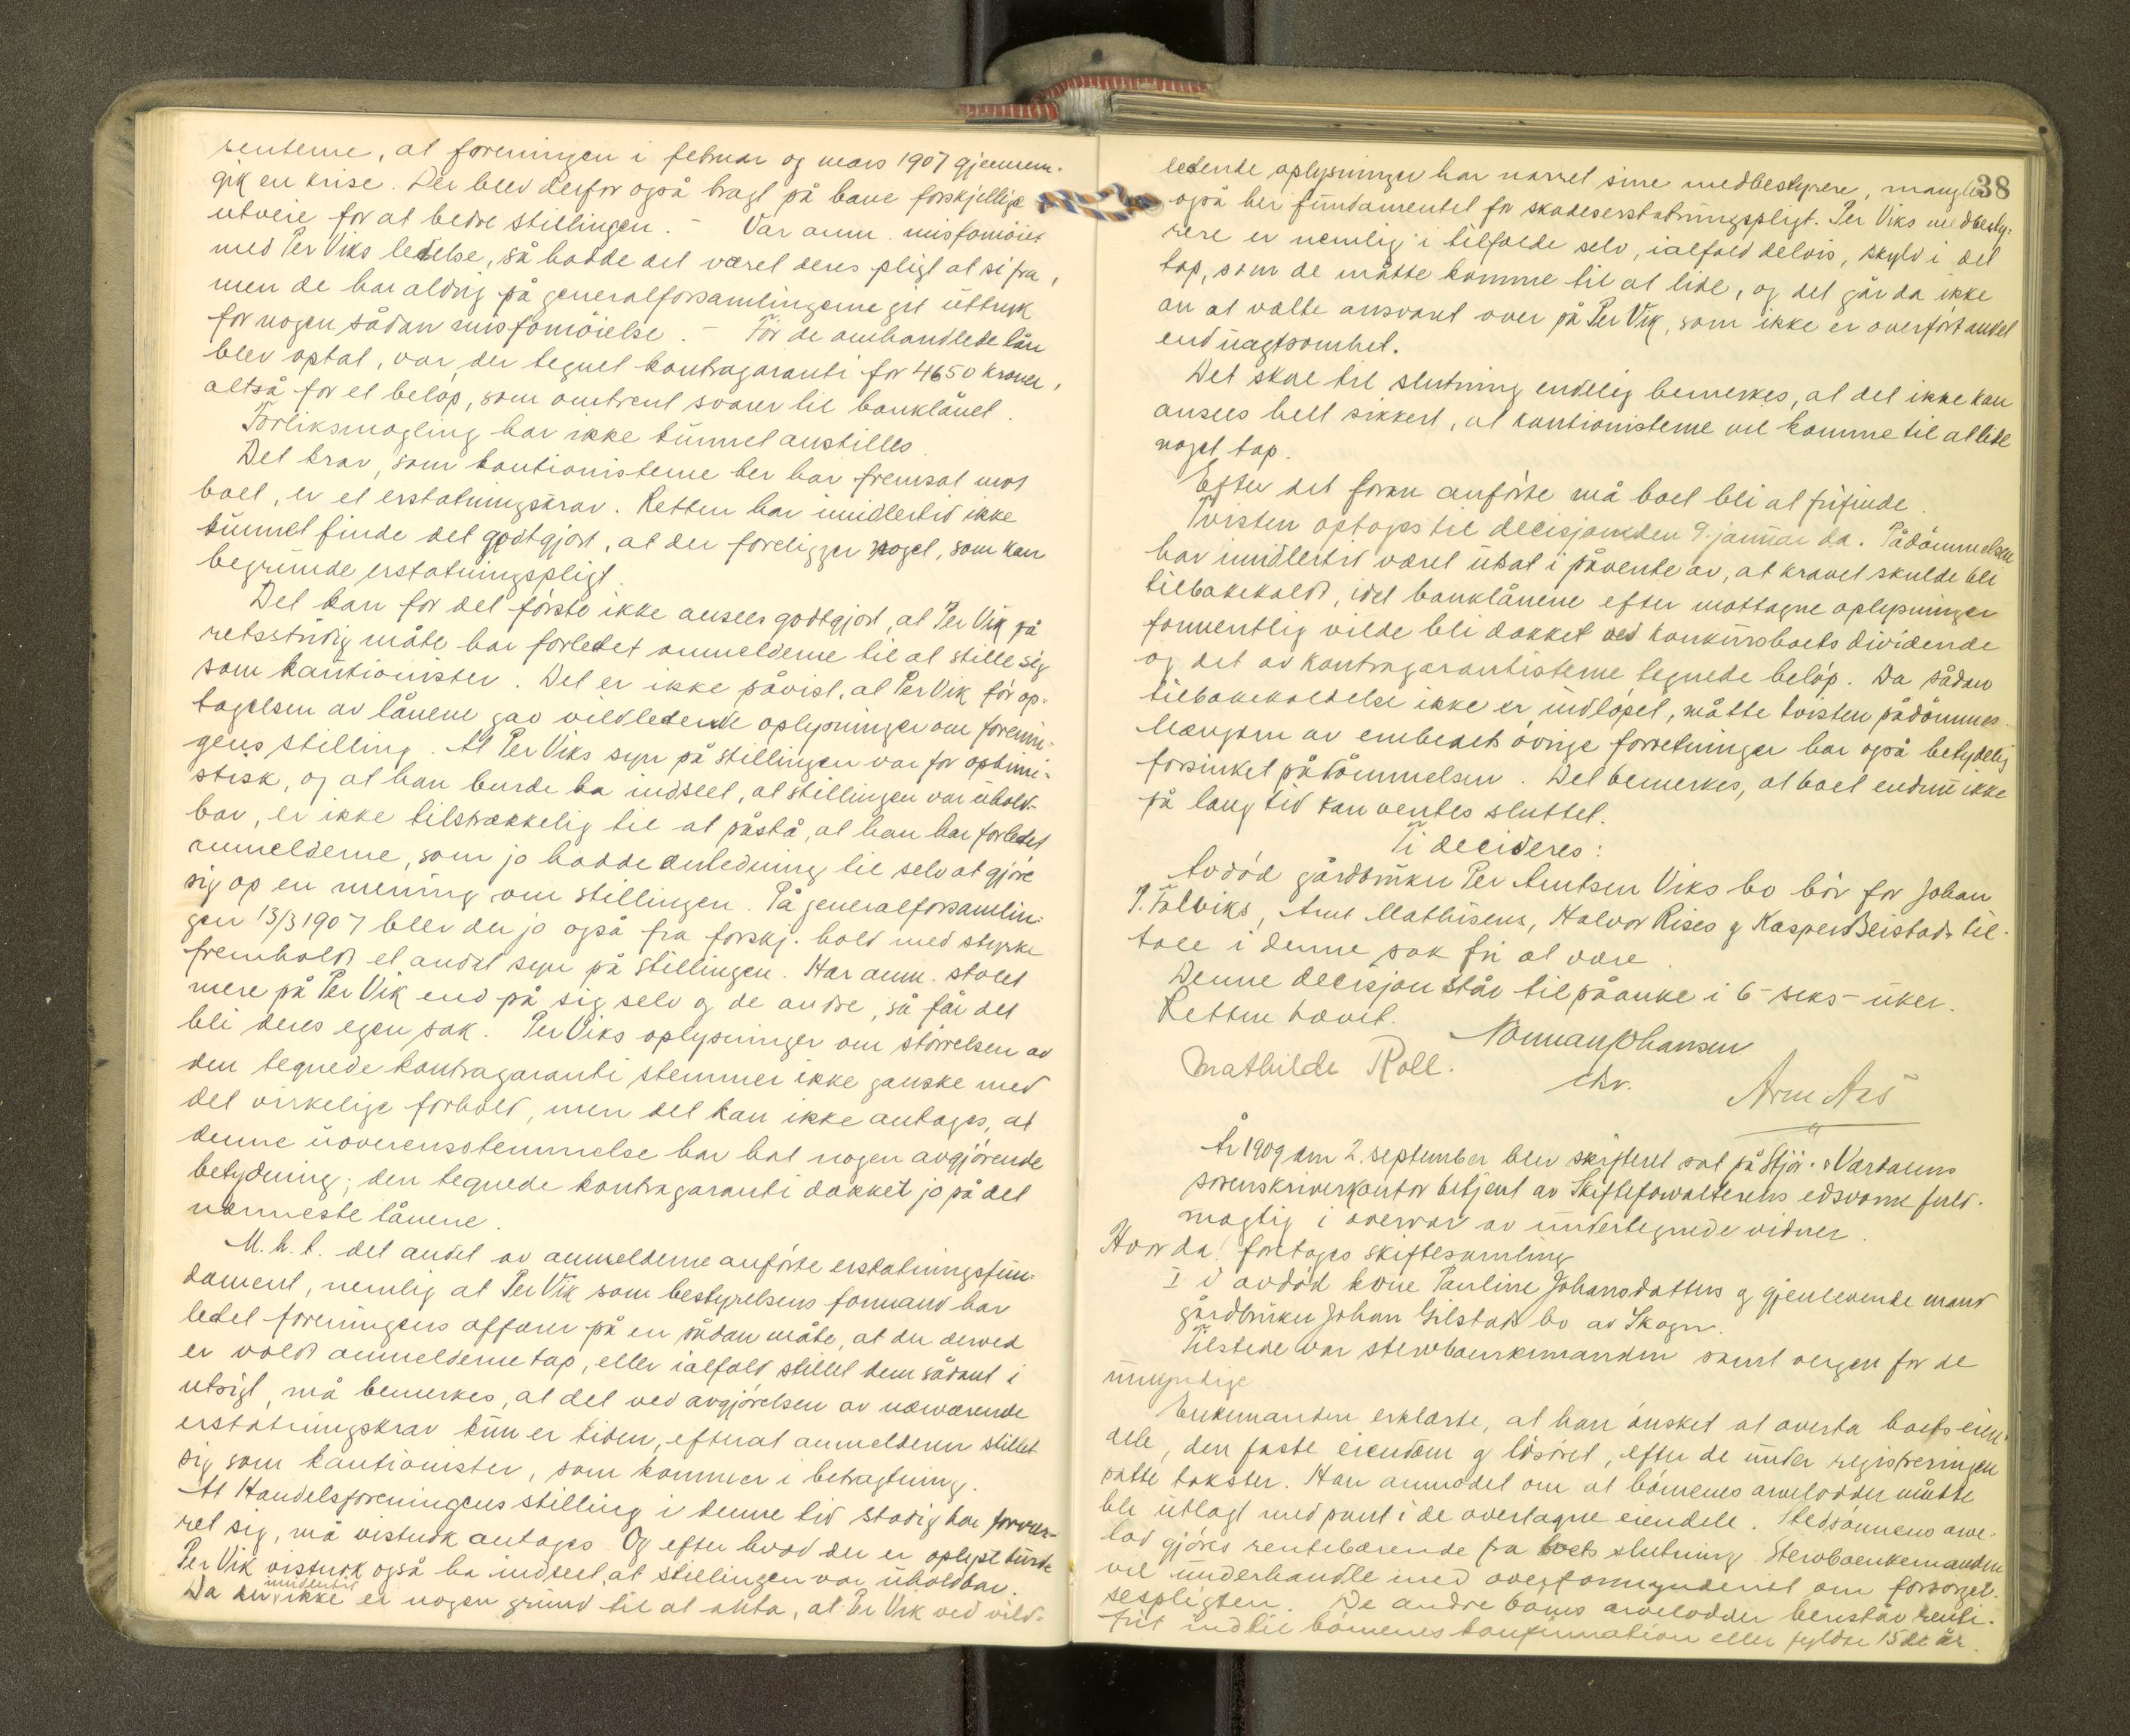 renterne, at foreningen i februar og mars 1907 gjennem-
gik en krise. Der blev derfor også bragt på bane forskjellige
utveie for at bedre stillingen. – Var anm. misfornøiet
med Per Viks ledelse, så hadde det været deres pligt at si fra,
men de har aldrig på generalforsamlingerne git uttryk
for nogen sådan misfornøielse. – Før de omhandlede lån
blev optat, var der tegnet kontragaranti for 4650 kroner,
altså for et beløp, som omtrent svarer til banklånet.
Forliksmægling har ikke kunnet anstilles.
Det krav, som kautionisterne her har fremsat mot
boet, er et erstatningskrav. Retten har imidlertid ikke
kunnet finde det godtgjort, at der foreligger noget, som kan
begrunde erstatningspligt.
Det kan for det første ikke ansees godtgjort, at Per Vik på
retsstridig måte har forledet anmelderne til at stille sig
som kautionister. Det er ikke påvist, at Per Vik før op-
tagelsen av lånene gav vildledende oplysninger om forenin-
gens stilling. At Per Viks syn på stillingen var for optimi-
stisk, og at han burde ha indseet, at stillingen var uhold-
bar, er ikke tilstrækkelig til at påstå, at han har forledet
anmelderne, som jo hadde anledning til selv at gjøre
sig op en mening om stillingen. På generalforsamlin-
gen 13/3 1907 blev der jo også fra forskj. hold med styrke
fremholdt et andet syn på stillingen. Har anm. stolet
mere på Per Vik end på sig selv og de andre, så får det
bli deres egen sak. Per Viks oplysninger om størrelsen av
den tegnede kontragaranti stemmer ikke ganske med
det virkelige forhold, men det kan ikke antages, at
denne uoverensstemmelse har hat nogen avgjørende
betydning; den tegnede kontragaranti dækket jo på det
nærmeste lånene.
M.h.t. det andet av anmelderne anførte erstatningsfun-
dament, nemlig at Per Vik som bestyrelsens formand har
ledet foreningens affærer på en sådan måte, at der derved
er voldt anmelderne tap, eller ialfald stillet dem sådant i
utsigt, må bemerkes, at det ved avgjørelsen av nærværende
erstatningskrav kun er tiden, efterat anmelderne stillet
sig som kautionister, som kommer i betragtning.
At Handelsforeningens stilling i denne tid stadig har forvær-
ret sig, må vistnok antages. Og efter hvad der er oplyst burde
Per Vik vistnok også ha indseet, at stillingen var uholdbar.
Da der imidlertid ikke er nogen grund til at anta, at Per Vik ved vild-
38
ledende oplysninger har narret sine medbestyrere, mangler
også her fundamentet for skadeserstatningspligt. Per Viks medbesty-
rere er nemlig i tilfælde selv, ialfald delvis, skyld i det
tap, som de måtte komme til at lide, og det går da ikke
an at vælte ansvaret over på Per Vik, som ikke er overført andet
end uagtsomhet.
Det skal til slutning endelig bemerkes, at det ikke kan
ansees helt sikkert, at kautionisterne vil komme til at lide
noget tap.
Efter det foran anførte må boet bli at frifinde.
Tvisten optoges til decisjon den 9. januar d.a. Pådømmelsen
har imidlertid været utsat i påvente av, at kravet skulde bli
tilbakekaldt, idet banklånene efter mottagne oplysninger
formentlig vilde bli dækket ved konkursboets dividende
og det av kontragarantisterne tegnede beløp. Da sådan
tilbakekaldelse ikke er indløpet, måtte tvisten pådømmes.
Mængden av embedets øvrige forretninger har også betydelig
forsinket pådømmelsen. Det bemerkes, at boet endnu ikke
på lang tid kan ventes sluttet.
Ti decideres:
Avdød gårdbruker Per Arntsen Viks bo bør for Johan
P. Falviks, Arnt Mathisens, Halvor Rises og Kasper Beistads til-
tale i denne sak fri at være.
Denne decisjon står til påanke i 6 – seks – uker.
Retten hævet.
Norman Johansen
Mathilde Roll.
chv.
Arne Aas
År 1909 den 2. september blev skifteret sat på Stjør- & Værdalens
sorenskriverkontor betjent av Skifteforvalterens edsvorne fuld-
mægtig i overvær av undertegnede vidner.
Hvorda: foretoges skiftesamling
I i avdød kone Pauline Johansdatters og gjenlevende mand
gårdbruker Johan Gilstads bo av Skogn.
Tilstede var stervboenkemanden samt vergen for de
umyndige.
Enkemanden erklærte, at han ønsket at overta boets eien-
dele, den faste eiendom og løsøret, efter de under registreringen
satte takster. Han anmodet om at børnenes arvelodder måtte
bli utlagt med pant i de overtagne eiendele. Stedsønnens arve-
lod gjøres rentebærende fra boets slutning. Stervboenkemanden
vil underhandle med overformynderiet om forsørgel-
sespligten. De andre barns arvelodder henstår rente-
frit indtil børnenes konfirmation eller fyldte 15de år.